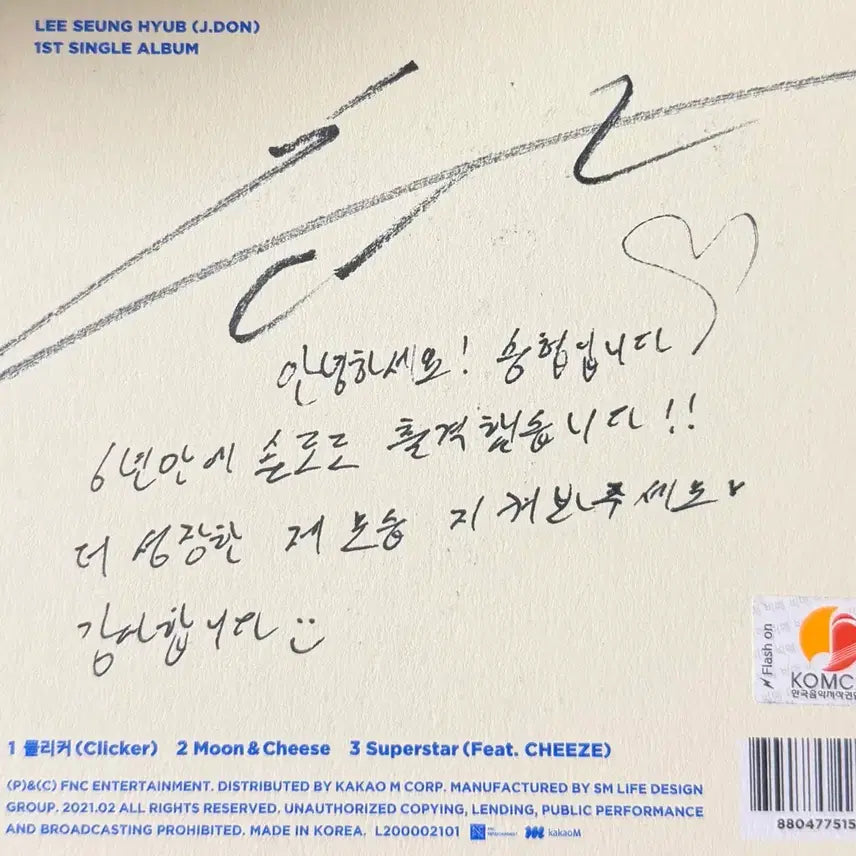 LEE SEUNG HYUB (J.DON)
1ST SINGLE ALBUM
안녕하세요! 승협입니다
6년만에 솔로로 출격했습니다!!
더 성장한 제 모습 지켜봐주세요♥
감사합니다 :)
Flash on
KOMC
1 클리커(Clicker) 2 Moon & Cheese 3 Superstar (Feat. CHEEZE)
(P)&(C) FNC ENTERTAINMENT. DISTRIBUTED BY KAKAO M CORP. MANUFACTURED BY SM LIFE DESIGN
GROUP. 2021.02 ALL RIGHTS RESERVED. UNAUTHORIZED COPYING, LENDING, PUBLIC PERFORMANCE
AND BROADCASTING PROHIBITED. MADE IN KOREA. L200002101 kakaoM
880477515